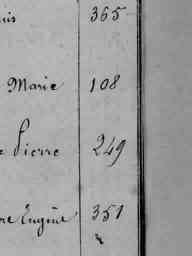 uis 365
Marie 108
e Pierre 249
re Eugène 351